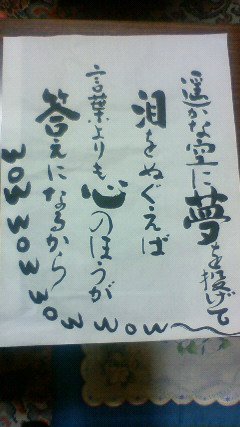 遥かな空に夢を投げて
泪をぬぐえば
言葉よりも心のほうが
答えになるから
wow wow wow wow wow〜